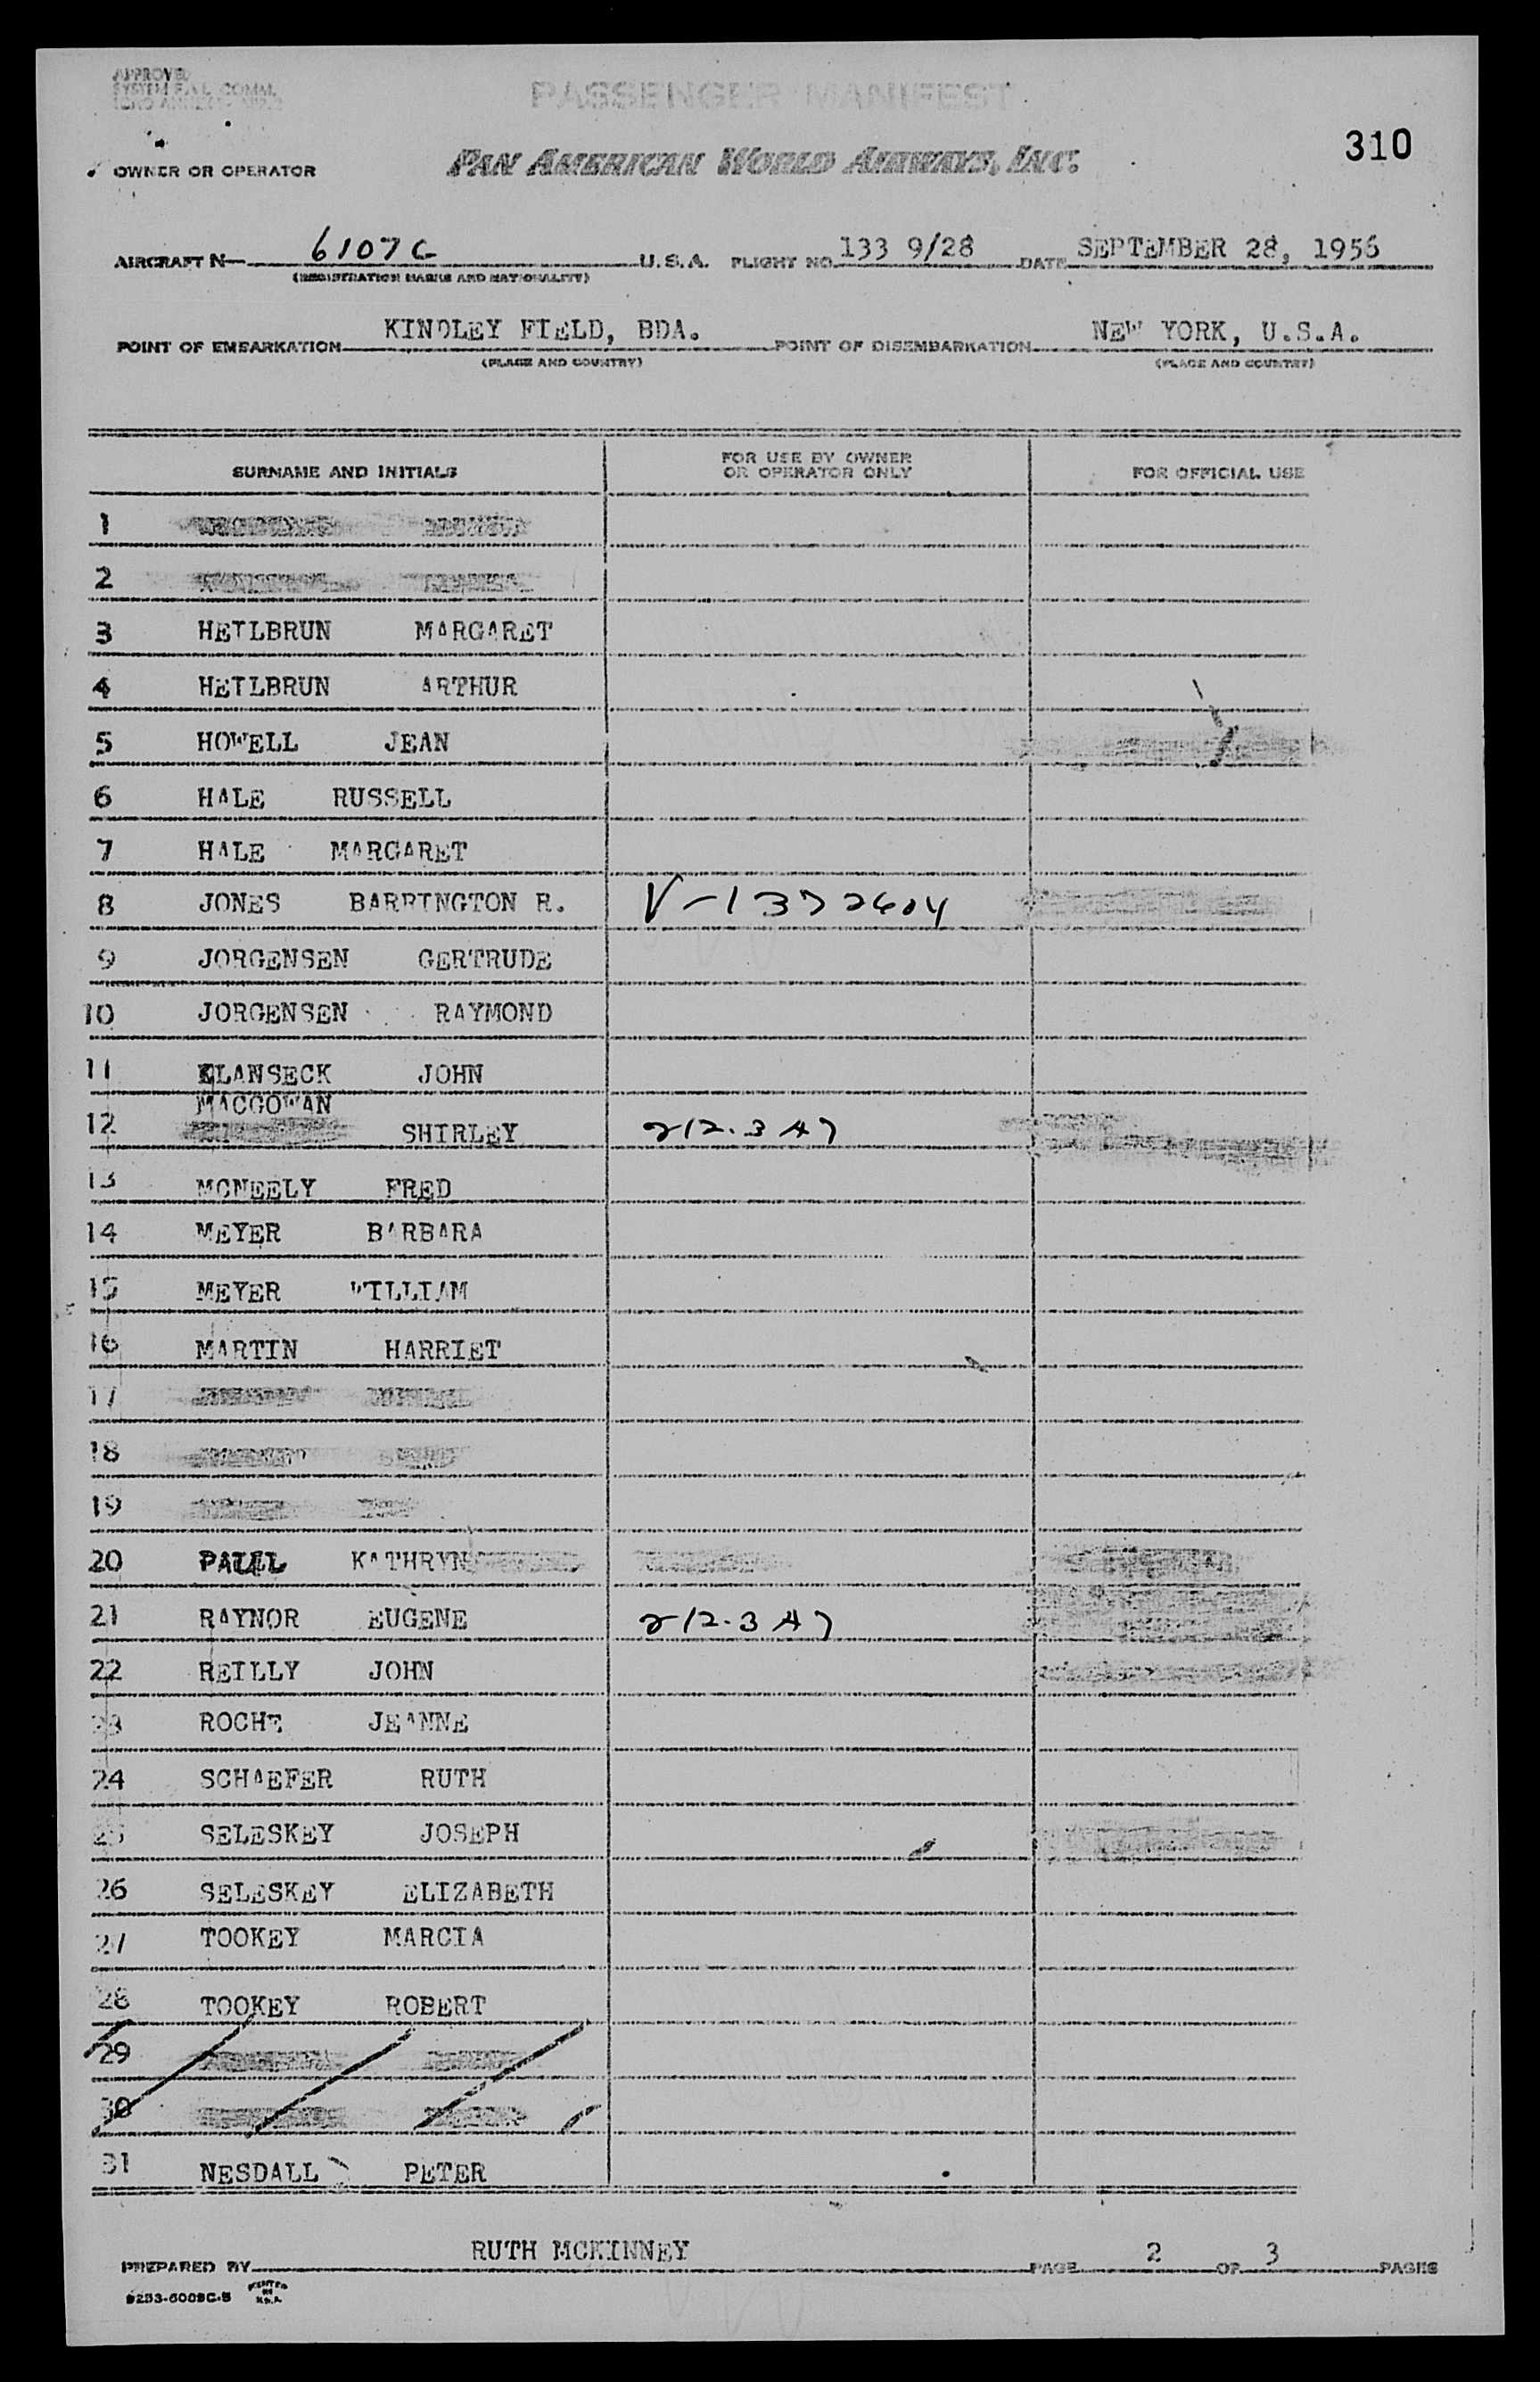 APPROVED
SYSTEM F.A.L. COMM.
PASSENGER MANIFEST
310
OWNER OR OPERATOR PAN AMERICAN WORLD AIRWAYS, INC.
AIRCRAFT N— 6107C U.S.A. FLIGHT NO. 133 9/28 DATE SEPTEMBER 28, 1956
(REGISTRATION MARKS AND NATIONALITY)
POINT OF EMBARKATION KINDLEY FIELD, BDA. POINT OF DISEMBARKATION NEW YORK, U.S.A.
(PLACE AND COUNTRY) (PLACE AND COUNTRY)
SURNAME AND INITIALS FOR USE BY OWNER OR OPERATOR ONLY FOR OFFICIAL USE
1
2
3 HEILBRUN MARGARET
4 HEILBRUN ARTHUR
5 HOWELL JEAN
6 HALE RUSSELL
7 HALE MARGARET
8 JONES BARRINGTON R. V-1372604
9 JORGENSEN GERTRUDE
10 JORGENSEN RAYMOND
11 KLANSECK JOHN
MACGOWAN
12 SHIRLEY 212.3 A7
13 MCNEELY FRED
14 MEYER BARBARA
15 MEYER WILLIAM
16 MARTIN HARRIET
17
18
19
20 PAULL KATHRYN
21 RAYNOR EUGENE 212.3 A7
22 REILLY JOHN
23 ROCHE JEANNE
24 SCHAEFER RUTH
25 SELESKEY JOSEPH
26 SELESKEY ELIZABETH
27 TOOKEY MARCIA
28 TOOKEY ROBERT
29
30
31 NESDALL PETER
PREPARED BY RUTH MCKINNEY PAGE 2 OF 3 PAGES
9253-6009C-5 PRINTED IN U.S.A.